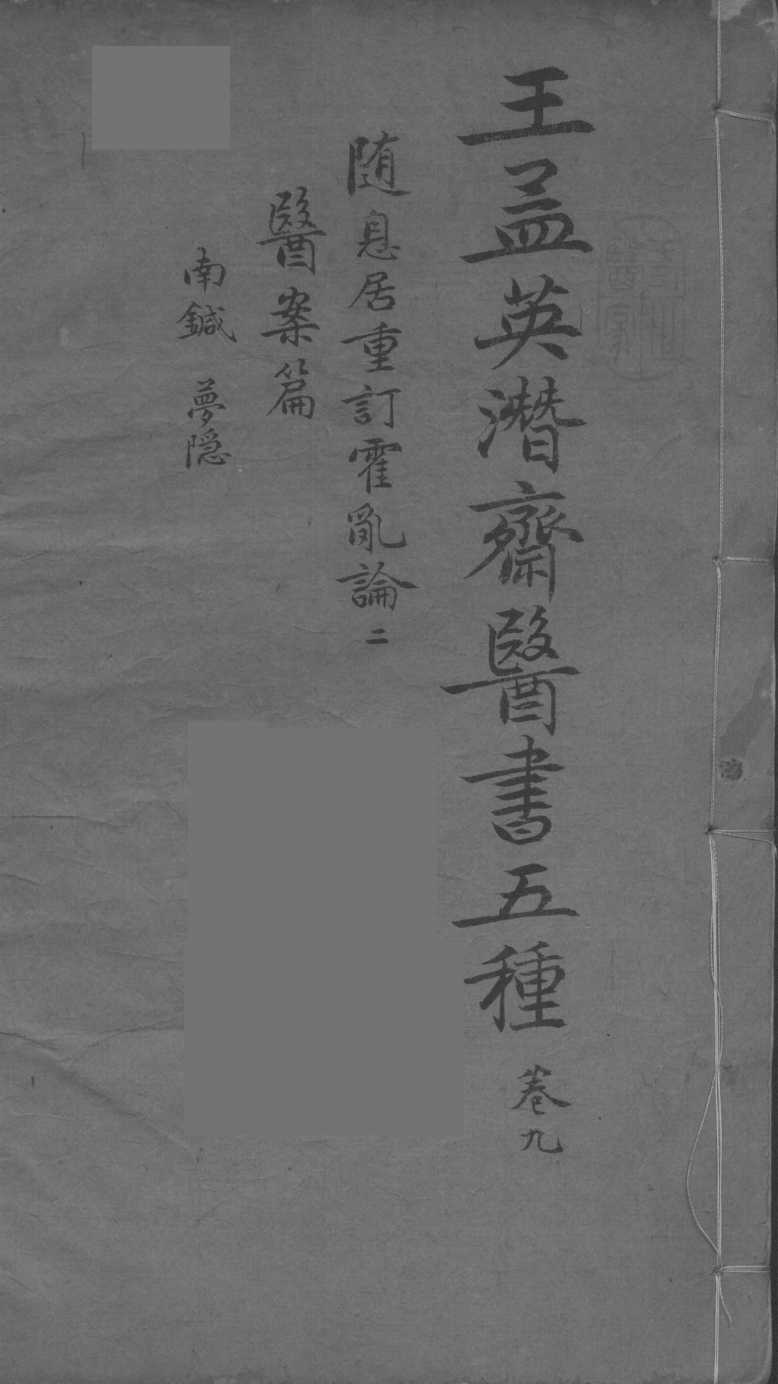 王孟英潛齋醫書五種 卷九
随息居重訂霍亂論 二
醫案篇
南鍼 夢隱